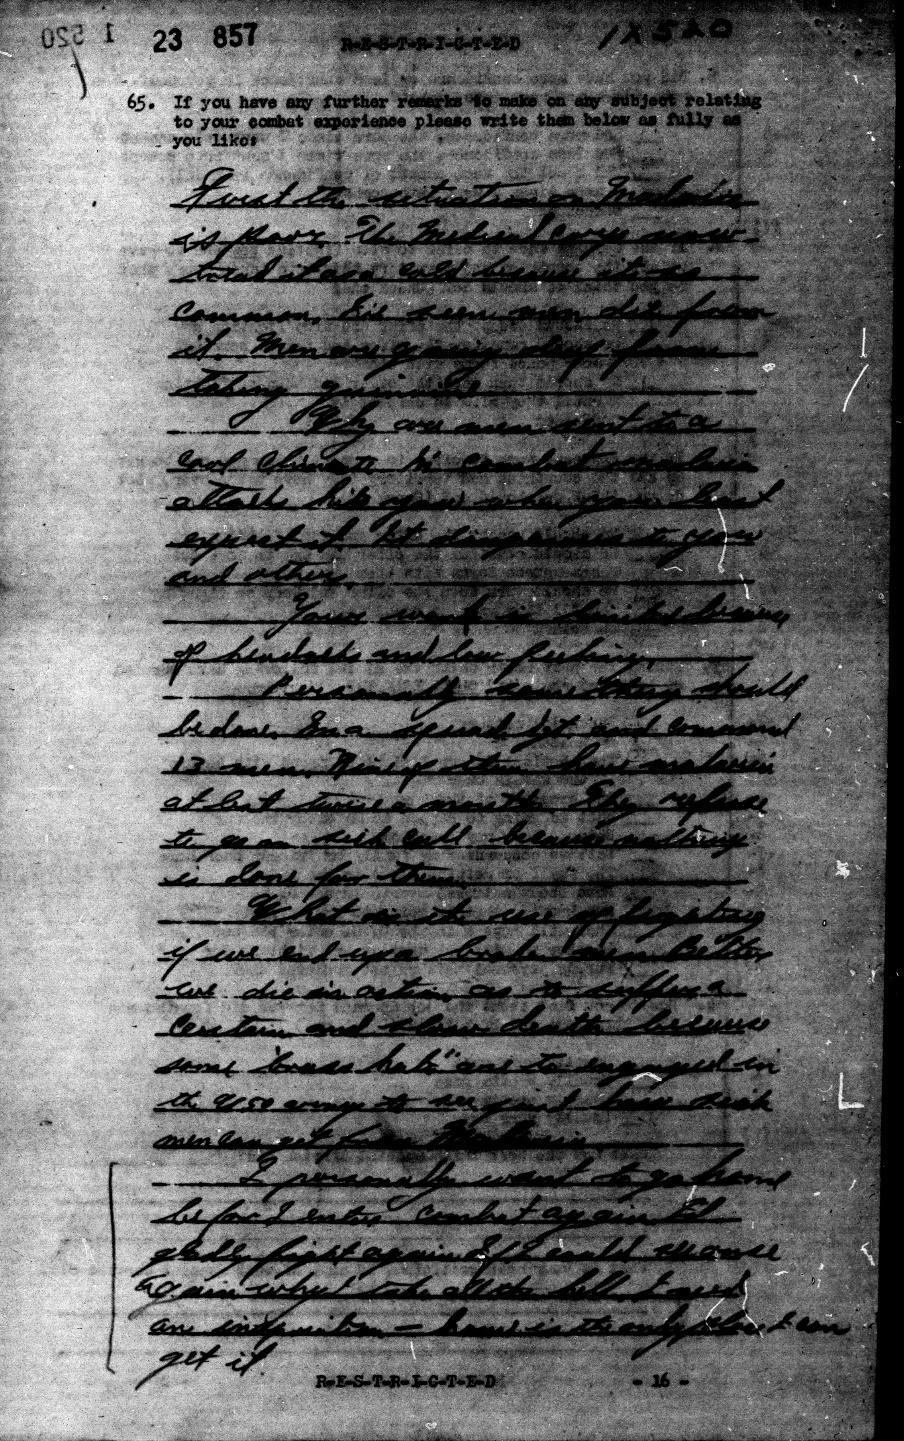 1 520
23 857
R-E-S-T-R-I-C-T-E-D
1X520
65. If you have any further remarks to make on any subject relating
to your combat experience please write them below as fully as
you like:
First the situation on Malaria
is poor. The Medical Corps now
treat it as a cold because its so
common. I've seen men die from
it. Men are going deaf from
taking quinine
Why are men sent to a
cool climate in combat malaria
attacks hits you when you least
expect it. It dangerous to you
and others.
Your work is limited because
of headache and low feeling.
Personally something should
be done. Im a squad Sgt. and command
13 men. Nine of them have malaria
at lest twice a month. They refuse
to go on sick call because nothing
is done for them.
What is the use of fighting
if we end up a broken man Better
we die in action as to suffer a
certain and slow death because
some "brass hats" are to engaged in
the U.S.O. wings to see just how sick
men can get from Malaria
I personally want to go home
before I enter combat again Ill
gladly fight again If I could
again what take all the hell. I need
an inspiration - home is the only place I can
get it
R-E-S-T-R-I-C-T-E-D - 16 -